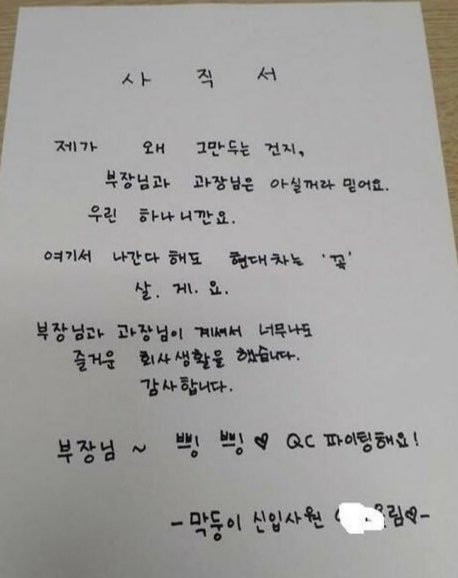 사 직 서
제가 왜 그만두는 건지,
부장님과 과장님은 아실꺼라 믿어요.
우린 하나니깐요.
여기서 나간다 해도 현대차는 '꼭'
살. 게. 요.
부장님과 과장님이 계셔서 너무나도
즐거운 회사생활을 했습니다.
감사합니다.
부장님 ~ 쁘잉 쁘잉♥ QC 파이팅해요!
- 막둥이 신입사원 림♥-